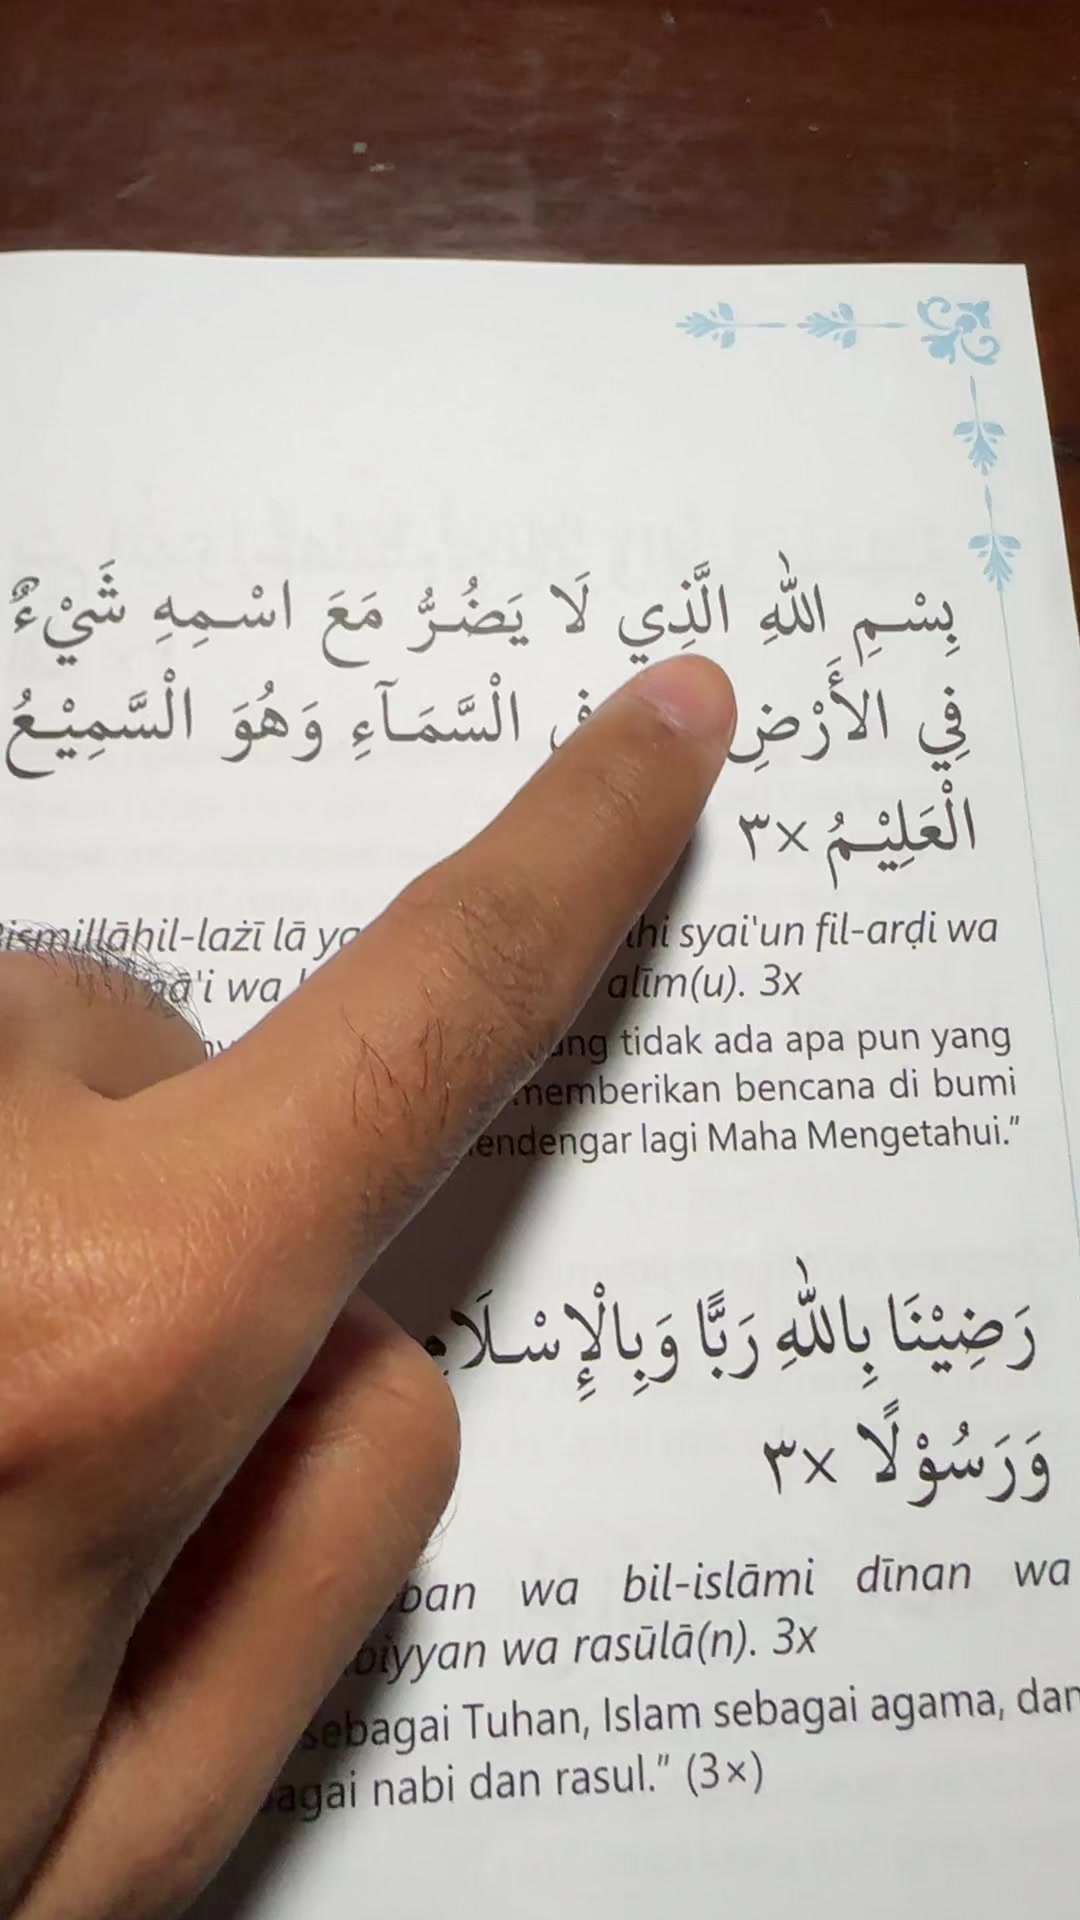 بِسْمِ اللّٰهِ الَّذِي لَا يَضُرُّ مَعَ اسْمِهِ شَيْءٌ
فِي الأَرْضِ السَّمَآءِ وَهُوَ السَّمِيْعُ
الْعَلِيْمُ ×٣
ismillāhil-lażī lā syai'un fil-arḍi wa
ā'i wa alīm(u). 3x
ang tidak ada apa pun yang
memberikan bencana di bumi
endengar lagi Maha Mengetahui."
رَضِيْنَا بِاللّٰهِ رَبًّا وَبِالْإِسْلَامِ
وَرَسُوْلًا ×٣
ban wa bil-islāmi dīnan wa
biyyan wa rasūlā(n). 3x
sebagai Tuhan, Islam sebagai agama, dan
agai nabi dan rasul." (3×)